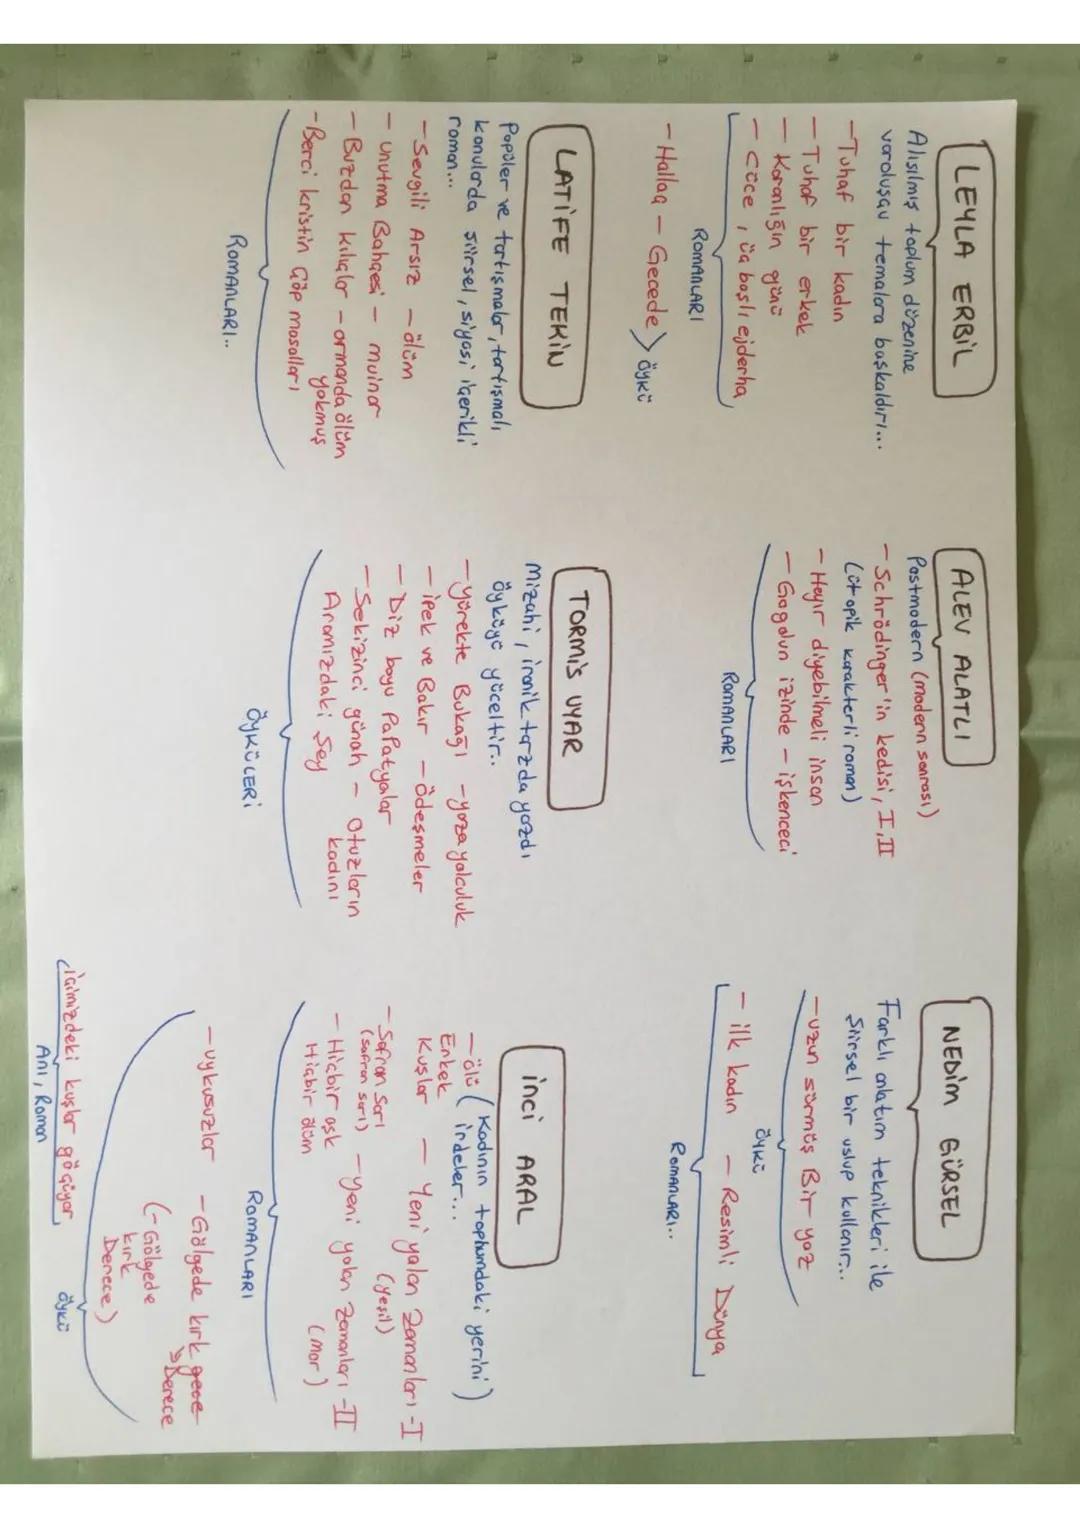 LEYLA ERBİL
Alışılmış toplum düzenine
varoluşçu temalara başkaldırı...
- Tuhaf bir kadın
- Tuhaf bir erkek
- Karanlığın günü
- Cüce, üç başlı ejderha
ROMANLARI
- Hallaç - Gecede > öykü
ALEV ALATLI
Postmodern (modern sonrası)
- Schrödinger'in kedisi, I, II
(ütopik karakterli roman)
- Hayır diyebilmeli insan
- Gogolun izinde - işkenceci
ROMANLARI
NEDİM GÜRSEL
Farklı anlatım teknikleri ile
Şiirsel bir uslup kullanır...
- uzun sürmüş Bir yaz
öykü
- ilk kadın - Resimli Dünya
ROMANLARI..
LATİFE TEKİN
Popüler ve tartışmalar, tartışmalı
konularda şiirsel, siyasi içerikli
roman...
- Sevgili Arsız - ölüm
- unutma Bahçesi - muinar
- Buzdan kılıçlar - ormanda ölüm
yokmuş
- Berci kristin Çöp masalları
ROMANLARI..
TORMİS UYAR
Mizahi, ironik tarzda yazdı
öyküyü yüceltir..
- yürekte Bukağı - yaza yolculuk
- ipek ve Bakır - ödeşmeler
- Diz boyu Papatyalar
- Sekizinci günah - Otuzların
kadını
Aramızdaki Şey
ÖYKÜLERİ
İNCİ ARAL
- ölü (Kadının toplumdaki yerini)
Erkek irdeler...
Kuşlar - Yeni yalan zamanları -I
(yeşil)
- Safran Sarı
(safran sarı) - yeni yalan zamanları -II
(mor)
- Hiçbir aşk
Hiçbir ölüm
ROMANLARI
- uykusuzlar - Gölgede kırk gece
Derece
(- Gölgede
kırk
Derece)
öykü
içimizdeki kuşlar göçüyor
Anı, Roman